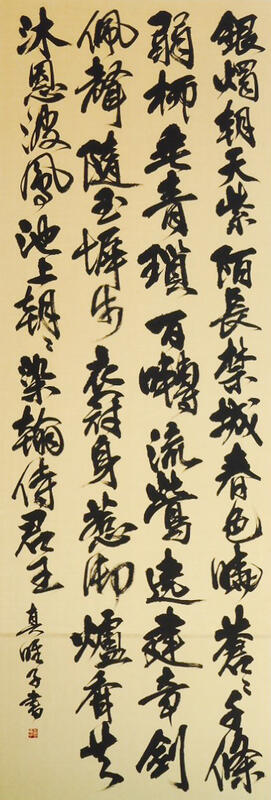 銀燭朝天紫陌長禁城春色曉蒼〻千條
弱柳垂青瑣百囀流鶯遶建章劍
佩聲隨玉墀步衣冠身惹御爐香共
沐恩波鳳池上朝〻染翰侍君王
真子書